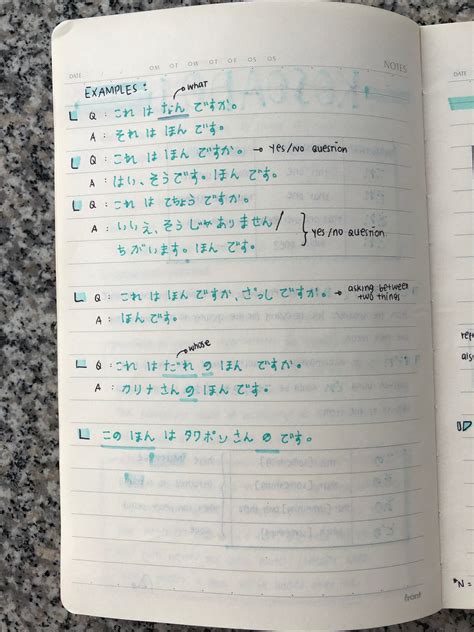 DATE
NOTES
DATE
EXAMPLES :
what
Q : これ は なん ですか。
A : それ は ほん です。
Q : これ は ほん ですか。 → yes/no question
A : はい、そうです。ほん です。
Q : これ は てちょう ですか。
A : いいえ、そう じゃ ありません/
ちがいます。ほん です。
yes/no question
Q : これ は ほん ですか、ざっし ですか。 → asking between two things
A : ほん です。
whose
Q : これ は だれ の ほん ですか。
A : カリナさん の ほん です。
この ほん は タワポンさん の です。
front
*N =